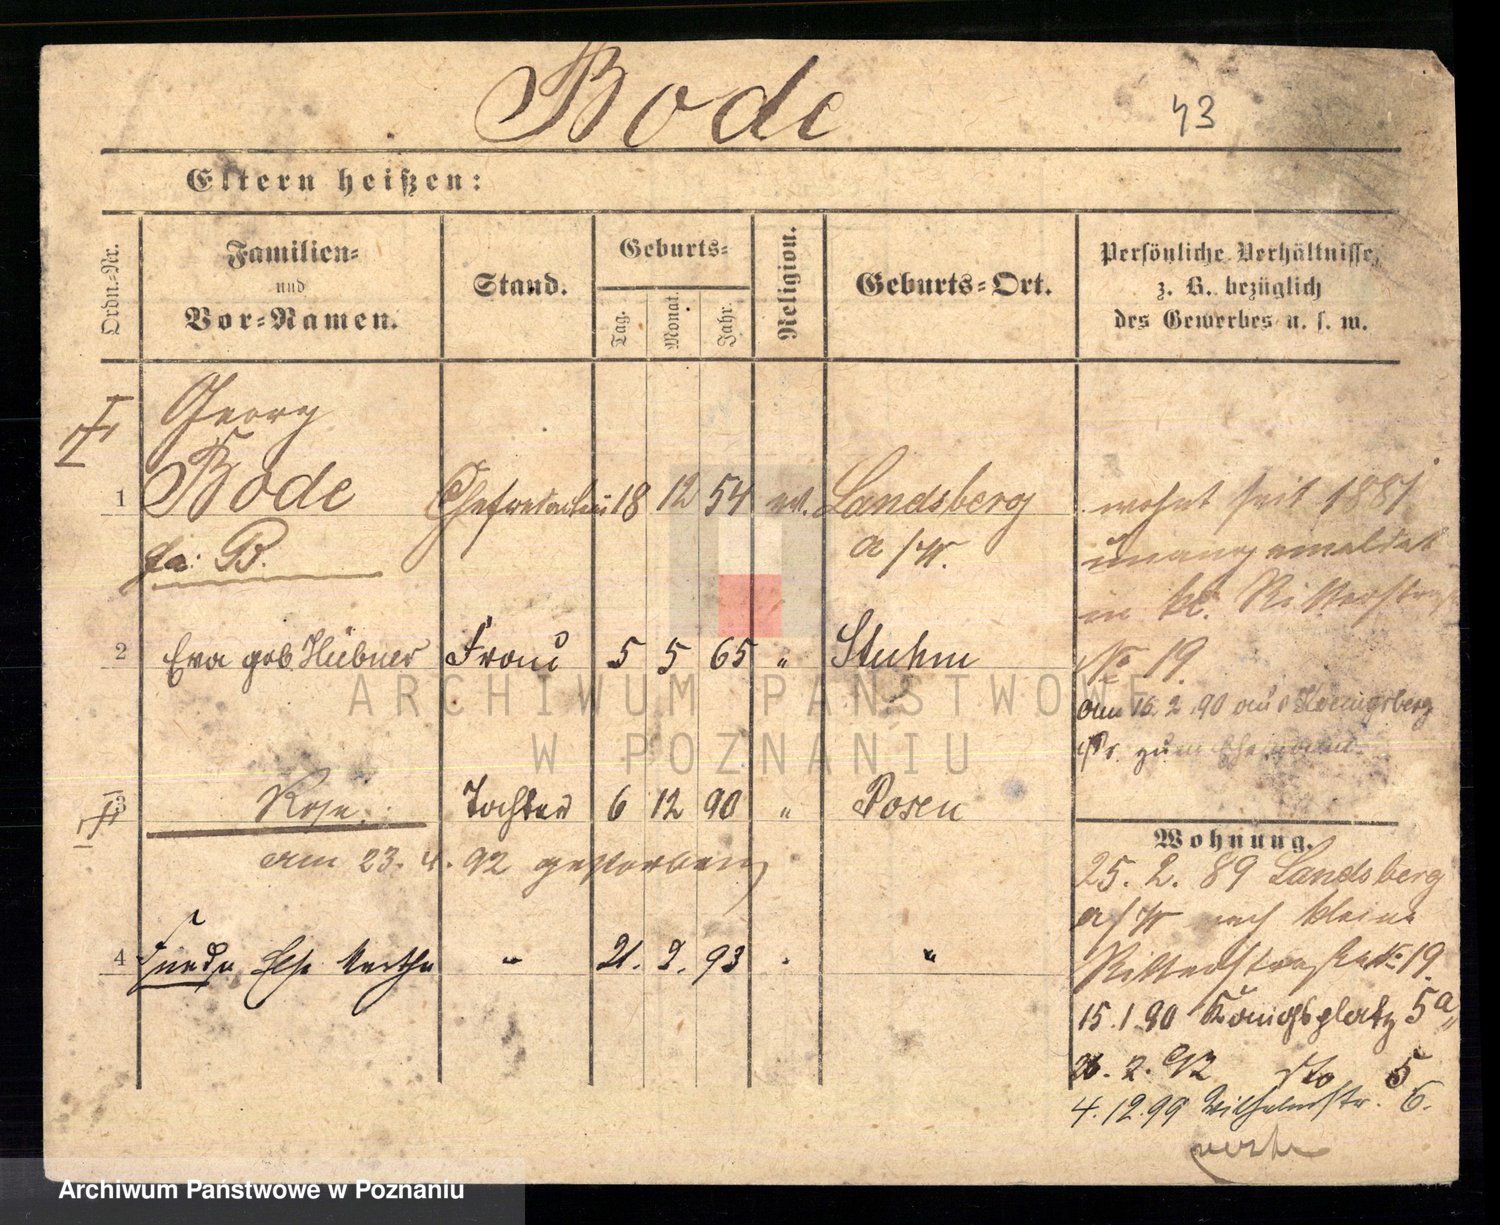 Bode
43
Eltern heißen:
Ordn.-Nr.
Familien-
und
Vor-Namen.
Stand.
Geburts-
Tag.
Monat.
Jahr.
Religion.
Geburts-Ort.
Persönliche Verhältnisse,
z. B. bezüglich
des Gewerbes u. s. w.
Georg
1 Bode Chefredacteur 18 12 54 ev. Landsberg
a/W.
B.
wohnt seit 1881
unangemeldet
in kl. Ritterstraße
No 19.
2 Eva geb Hübner Frau 5 5 65 " Stuhm
am 16.2.90 aus Koenigsberg
i/Pr. zum Ehemann
3 Rose Tochter 6 12 90 " Posen
am 23. 4. 92 gestorben
4 Else Martha " 21. 2. 93 "
Wohnung.
25. 2. 89 Landsberg
a/W nach kleine
Ritterstraße No 19.
15.1.90 Königsplatz 5a
26. 2. 92 dto 5
4.12.99 Wilhelmstr. 6.
ARCHIWUM PAŃSTWOWE
W POZNANIU
Archiwum Państwowe w Poznaniu